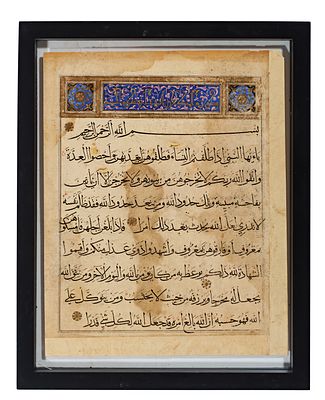 بسم الله الرحمن الرحيم
يا ايها النبي اذا طلقتم النساء فطلقوهن لعدتهن واحصوا العدة
واتقوا الله ربكم لا تخرجوهن من بيوتهن ولا يخرجن الا ان ياتين
بفاحشة مبينة وتلك حدود الله ومن يتعد حدود الله فقد ظلم نفسه
لا تدري لعل الله يحدث بعد ذلك امرا فاذا بلغن اجلهن فامسكوهن
بمعروف او فارقوهن بمعروف واشهدوا ذوي عدل منكم واقيموا
الشهادة لله ذلكم يوعظ به من كان يؤمن بالله واليوم الآخر ومن يتق الله
يجعل له مخرجا ويرزقه من حيث لا يحتسب ومن يتوكل على
الله فهو حسبه ان الله بالغ امره قد جعل الله لكل شيء قدرا